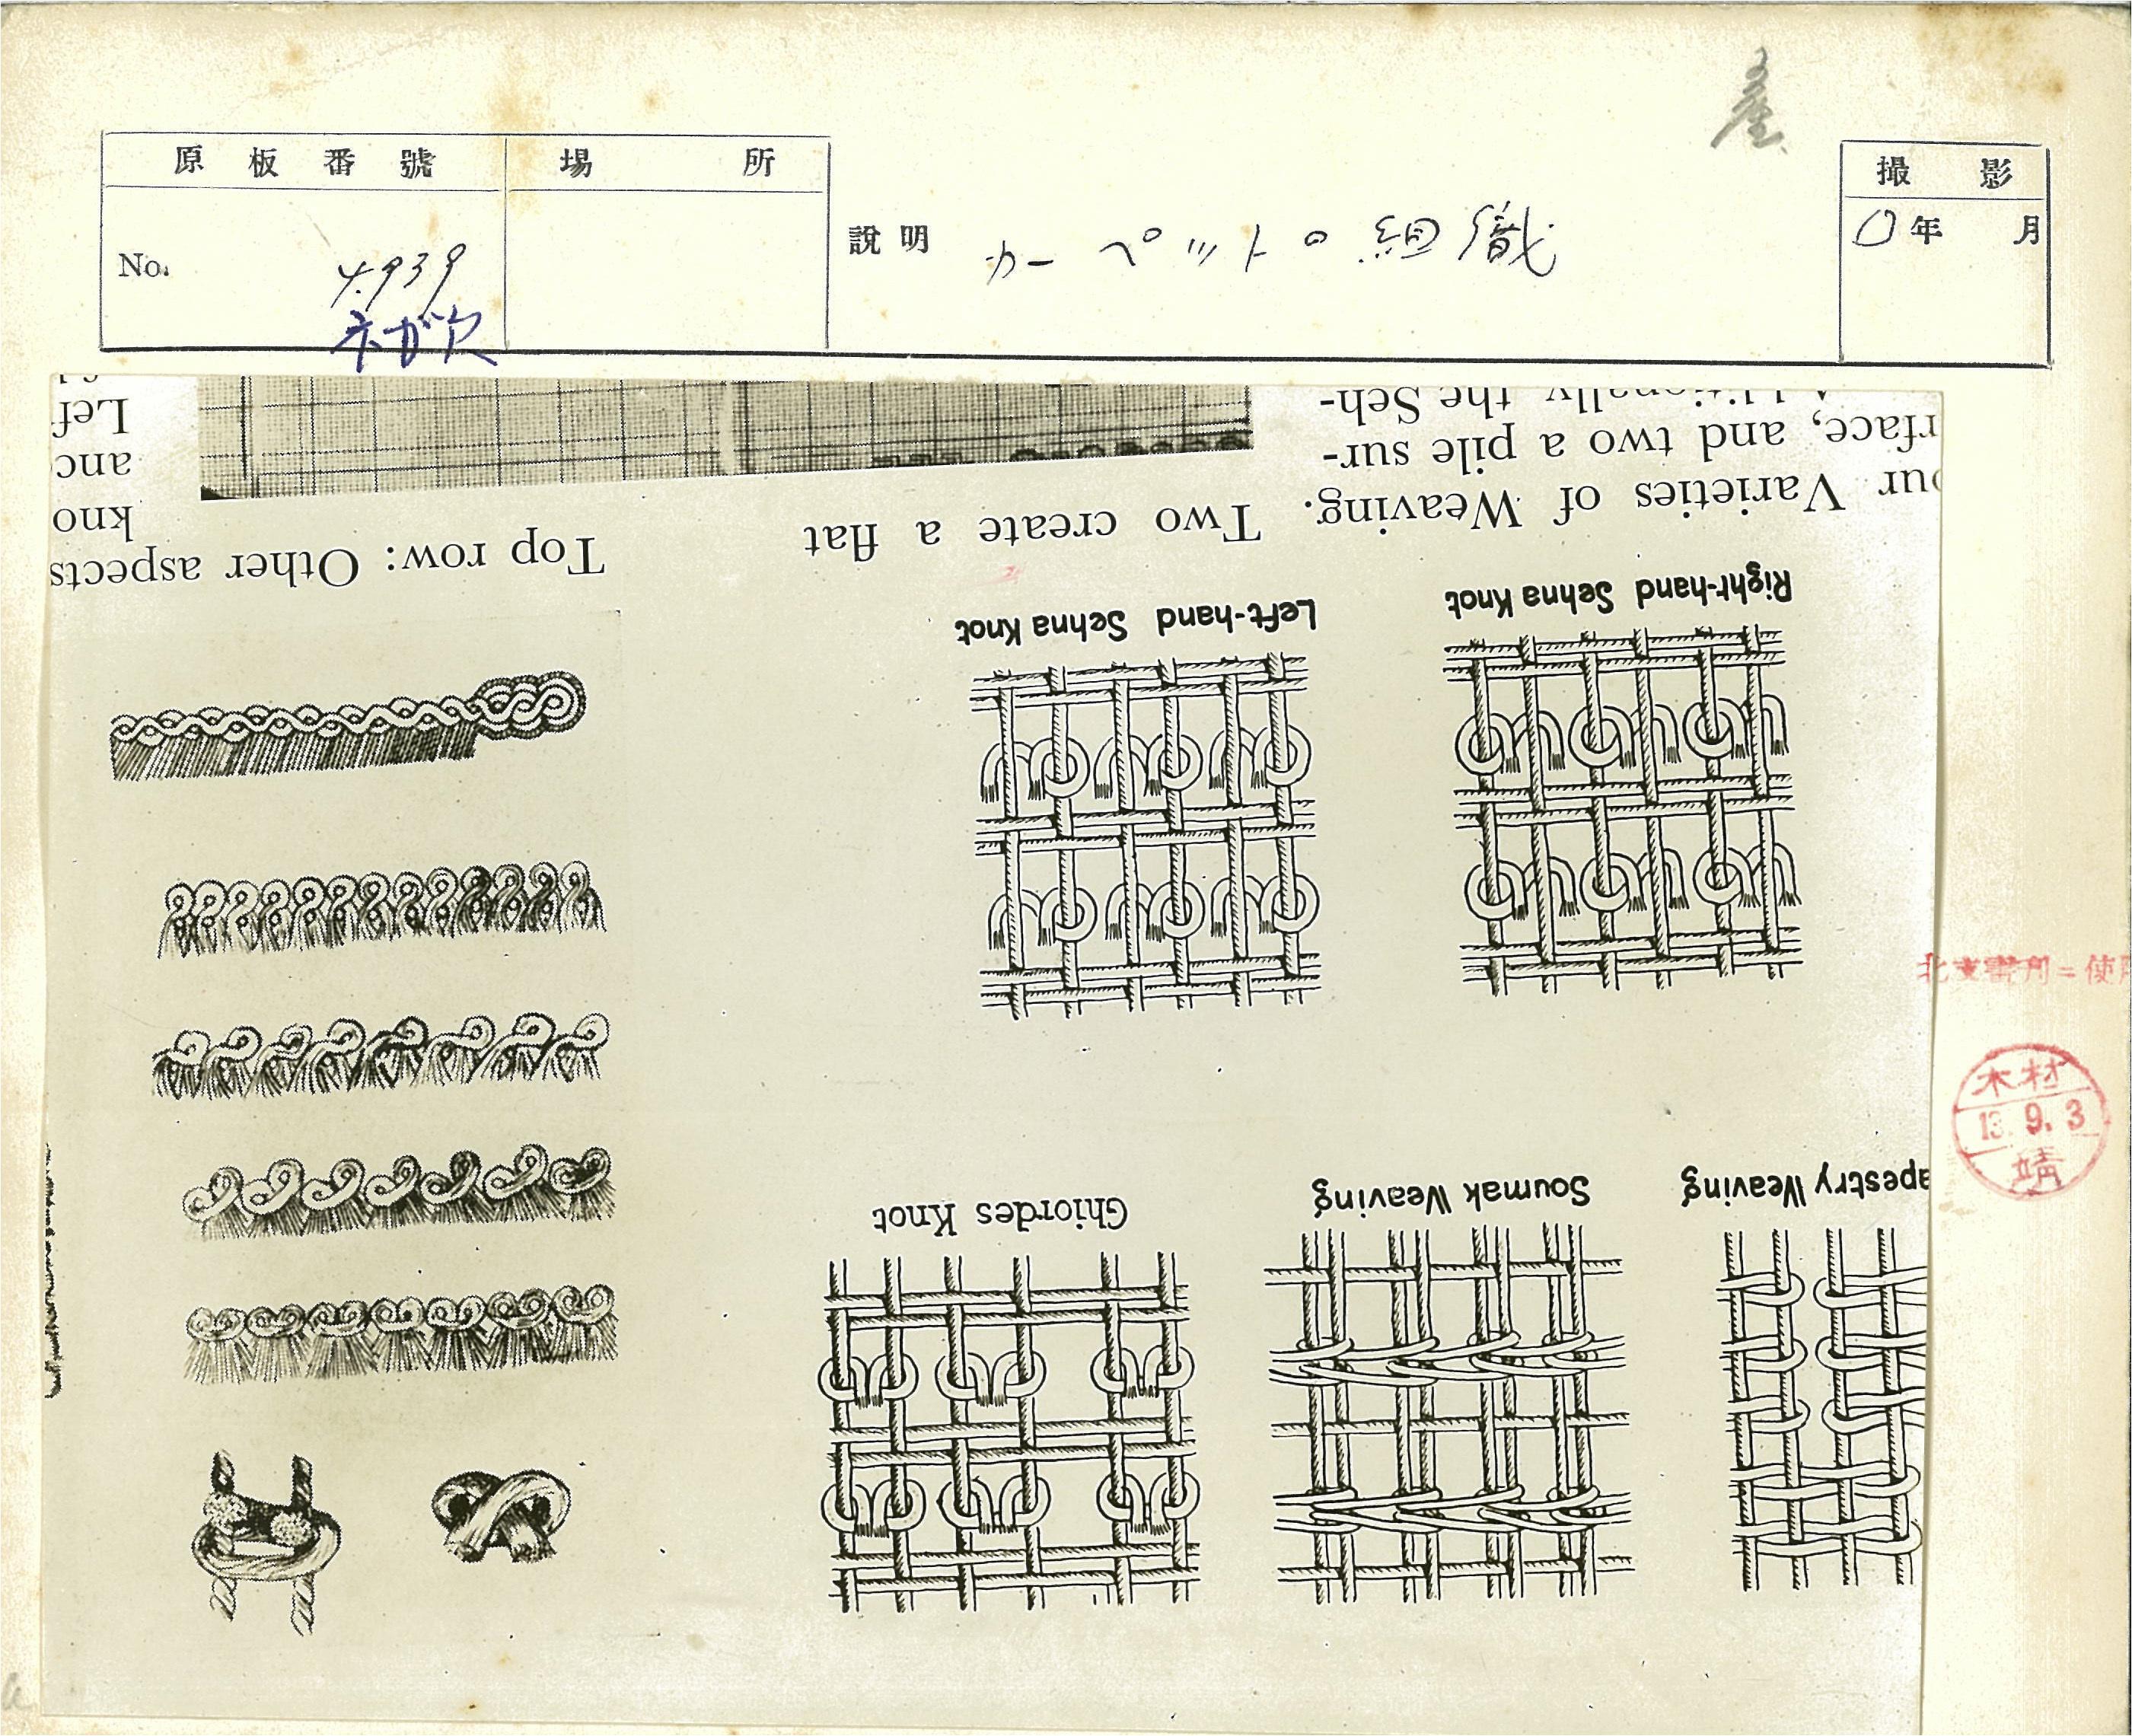 原板番號
場所
No. 4939
ネガ欠
説明 カーペットの組織
撮影
0年 月
産
Tapestry Weaving
Soumak Weaving
Ghiordes Knot
Right-hand Sehna Knot
Left-hand Sehna Knot
our Varieties of Weaving. Two create a flat
rface, and two a pile sur-
the Seh-
Top row: Other aspects
kno
anc
Lef
木村
13.9.3
靖